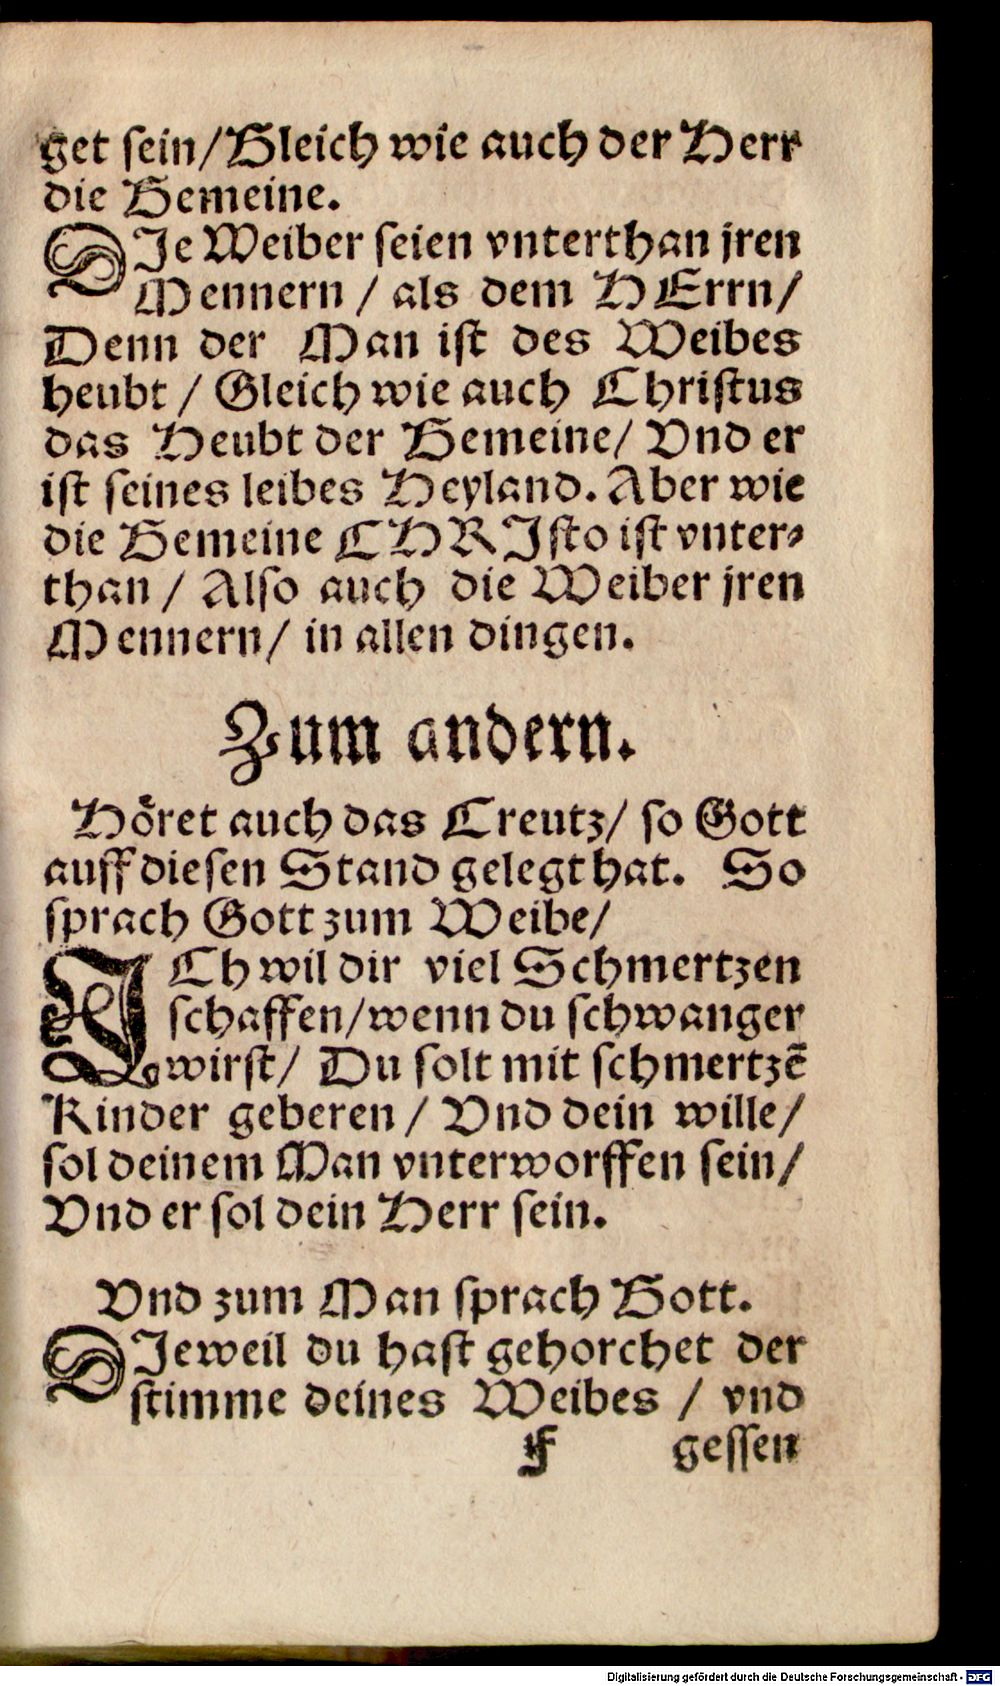 get sein/Gleich wie auch der Herr
die Gemeine.
DIe Weiber seien vnterthan jren
Mennern / als dem HErrn/
Denn der Man ist des Weibes
heubt / Gleich wie auch Christus
das Heubt der Gemeine/ Vnd er
ist seines leibes Heyland. Aber wie
die Gemeine CHRIsto ist vnter⸗
than / Also auch die Weiber jren
Mennern/ in allen dingen.
Zum andern.
Hoͤret auch das Creutz/ so Gott
auff diesen Stand gelegt hat. So
sprach Gott zum Weibe/
ICh wil dir viel Schmertzen
schaffen/wenn du schwanger
wirst/ Du solt mit schmertzē
Kinder geberen / Vnd dein wille/
sol deinem Man vnterworffen sein/
Vnd er sol dein Herr sein.
Vnd zum Man sprach Gott.
DIeweil du hast gehorchet der
stimme deines Weibes / vnd
f gessen
Digitalisierung gefördert durch die Deutsche Forschungsgemeinschaft - DFG